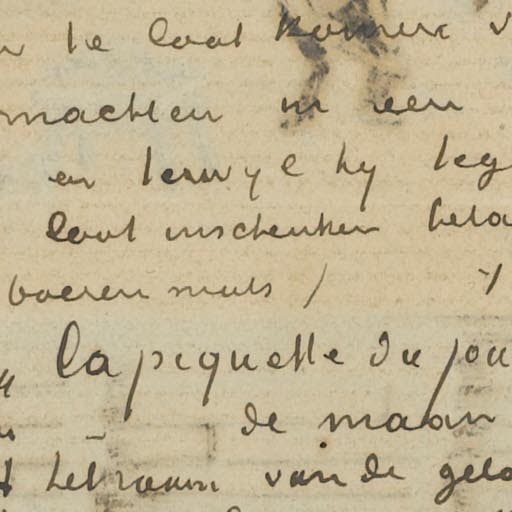 te laat komen
machten in een
en terwyl hy teg
laat inschenken beta
boeren muts /
la piquette du jou
de maan
het raam van de gela